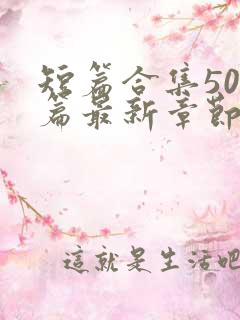 短篇合集50
篇最新章節
這就是生活吧